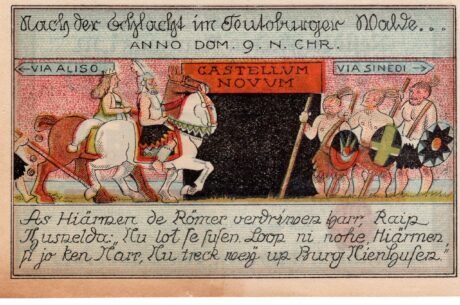 Nach der Schlacht im Teutoburger Walde...
ANNO DOM. 9. N. CHR.
← VIA ALISO.
CASTELLUM
NOVUM
VIA SINEDI →
As Hiärmen de Römer verdriwen harr, Raip
Thusnelda: „Nu lot se susen, Loop ni nohe, Hiärmen,
si jo ken Narr, Nu treck weg up Burg Nienhusen.“